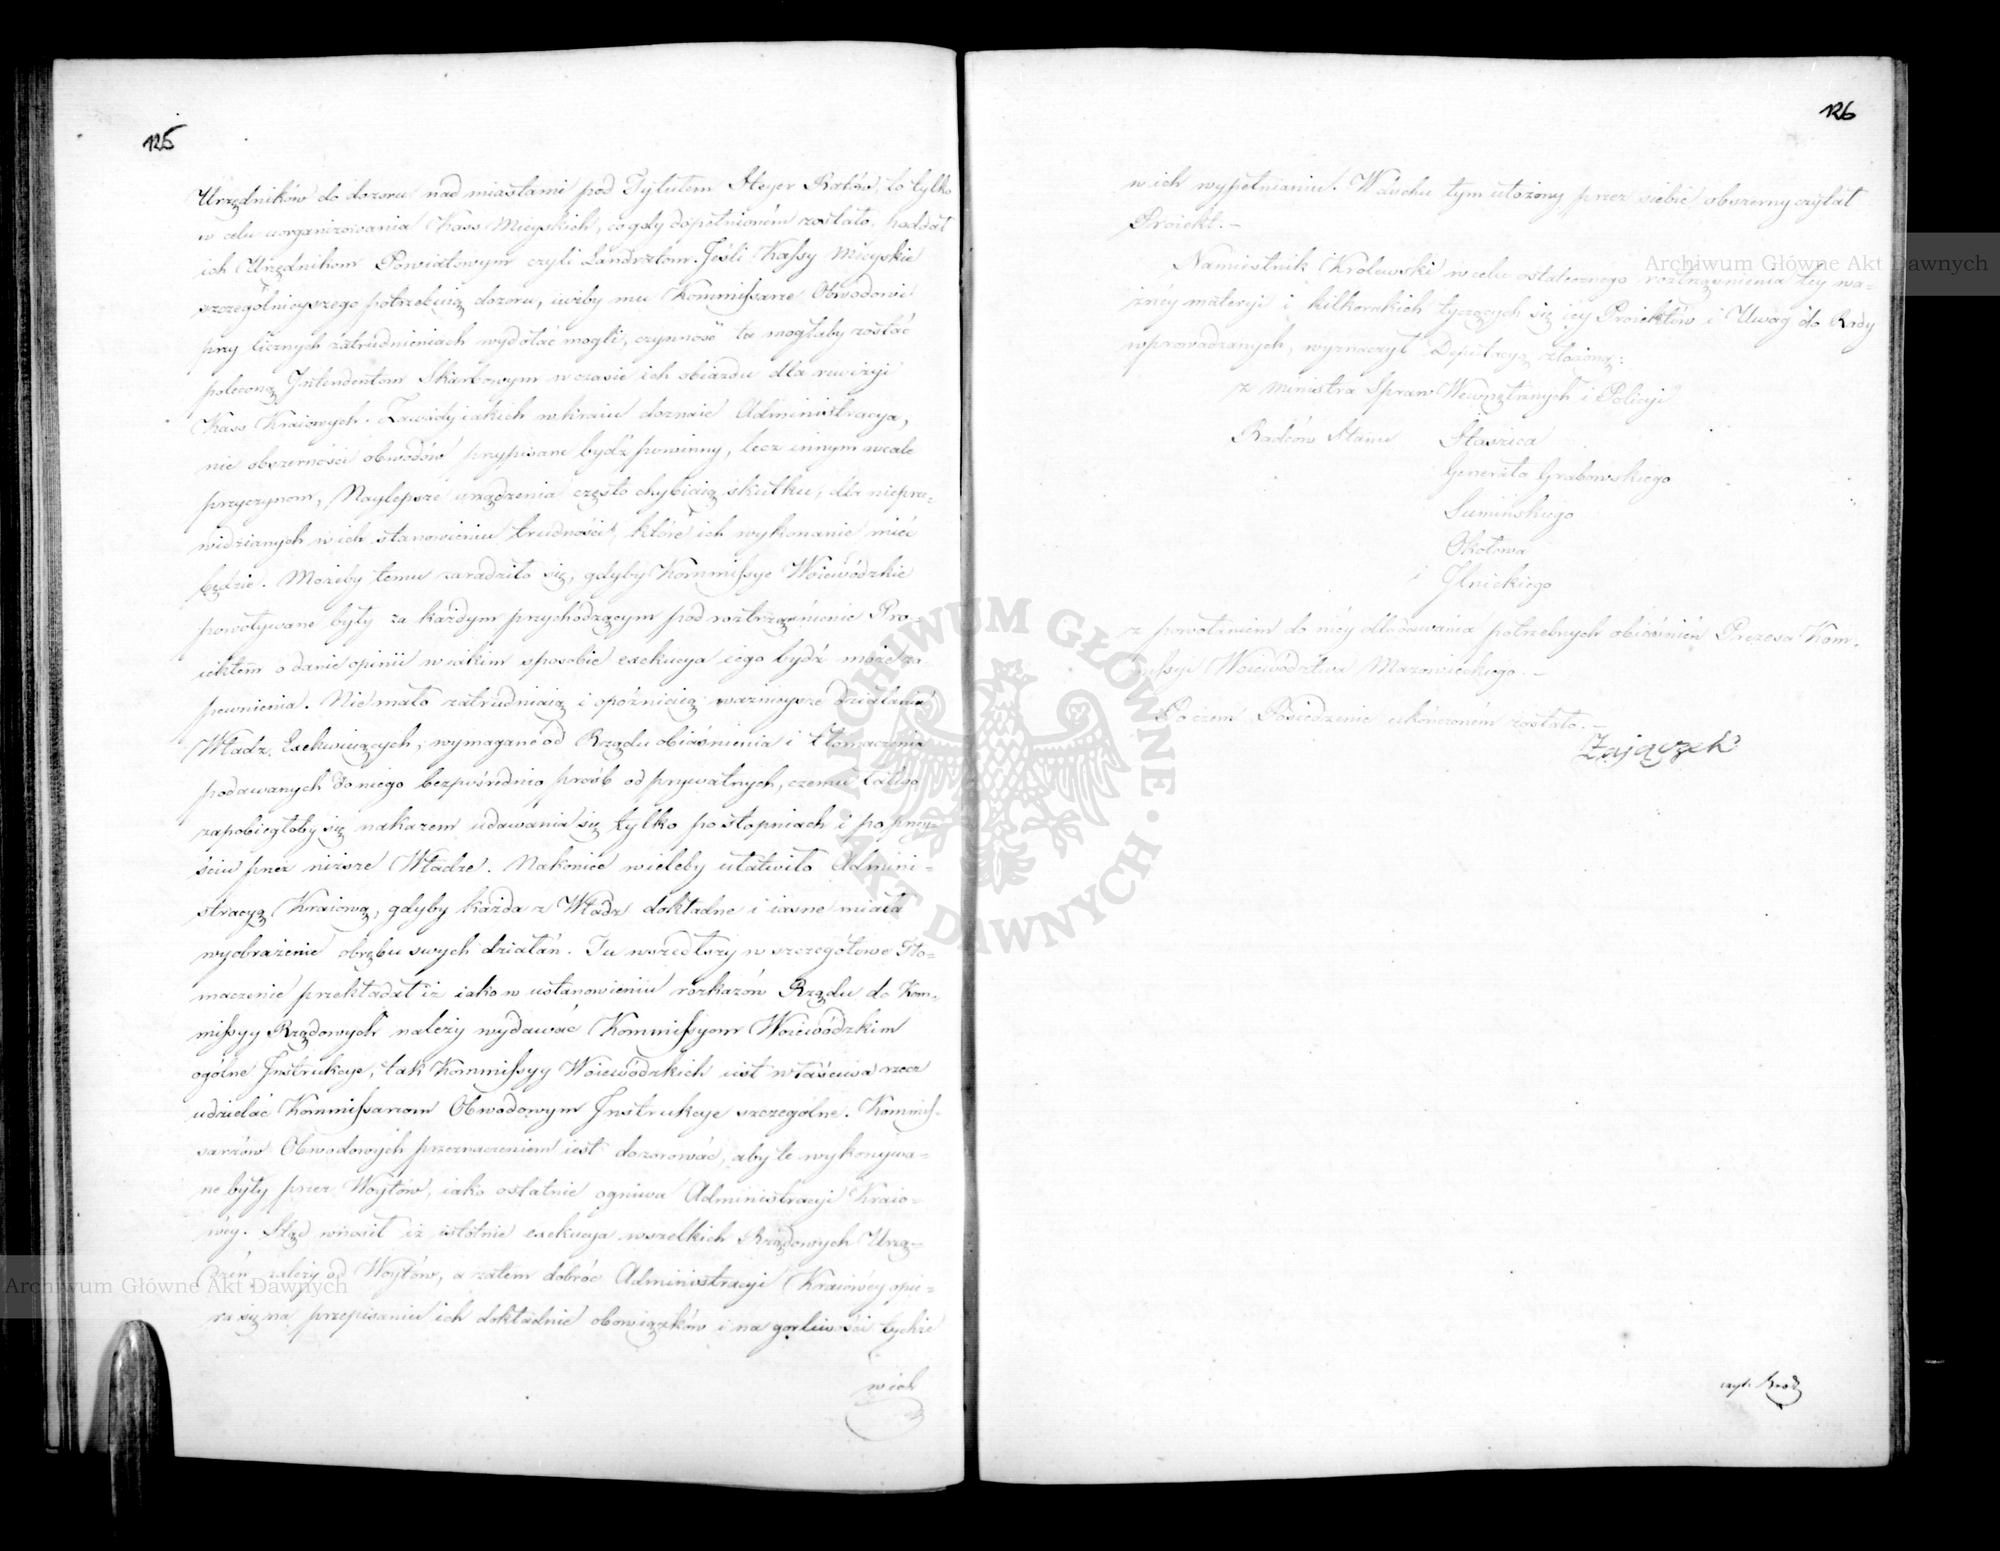 125
Urzędników do dozoru nad miastami pod Tytułem Steyer Ratów, to tylko
w celu uorganizowania Kass Mieyskich, co gdy dopełnioném zostało, poddał
ich Urzędnikom Powiatowym czyli Landratom. Jeśli Kassy Mieyskie
szczególnieyszego potrzebuią dozoru, iżby mu Kommissarze Obwodowi
przy licznych zatrudnieniach wydołać mogli, czynność ta mogłaby zostać
poleconą Intendentom Skarbowym w czasie ich obiazdu dla rewizyi
Kass Kraiowych. Zawady iakich w kraiu doznaie Administracya,
nie obszerności obwodów przypisane bydź powinny, lecz innym wcale
przyczynom, Naylepsze urządzenia często chybiaią skutku, dla nieprze-
widzianych w ich stanowieniu trudności, które ich wykonanie mieć
będzie. Możeby temu zaradziło się, gdyby Kommissye Woiewódzkie
powoływane były za każdym przychodzącym pod roztrząśnienie Pro-
iektem o danie opinii w iakim sposobie exekucya iego bydź może za
pewnioną. Nie mało zatrudniaią i opóźniaią ważnieysze działania
Władz Exekwuiących, wymagane od Rządu obiaśnienia i tłomaczenia
podawanych do niego bezpośrednio proźb od prywatnych, czemu łatwo
zapobiegłoby się nakazem udawania się tylko po stopniach i po przey-
ściu przez niższe Władze. Nakoniec wieleby ułatwiło Admini-
stracyą Kraiową, gdyby każda z Władz dokładne i iasne miała
wyobrażenie obrębu swych działań. Tu wszedłszy w szczegółowe Tło-
maczenie przekładał iż iako w ustanowieniu rozkazów Rządu do Kom-
missyy Rządowych należy wydawać Kommissyom Woiewódzkim
ogólne Instrukcye, tak Kommissyy Woiewódzkich iest właściwa rzecz
udzielać Kommissarzom Obwodowym Instrukcye szczególne. Kommis-
sarzów Obwodowych przeznaczeniem iest dozorować, aby te wykonywa-
ne były przez Woytów, iako ostatnie ogniwa Administracyi Kraio-
wéy. Stąd wnosił iż istotnie exekucya wszelkich Rządowych Urzą-
dzeń zależy od Woytów, a zatem dobróć Administracyi Kraiowéy opie-
ra się na przepisaniu ich dokładnie obowiązków i na gorliwości tychże
w ich
126
w ich wypełnianiu. W duchu tym ułożony przez siebie obszerny czytał
Proiekt.
Namiestnik Królewski w celu ostatecznego roztrząśnienia téy wa-
żnéy materyi i kilkorakich tyczących się iéy Proiektów i Uwag do Rady
wprowadzanych, wyznaczył Deputacyą złożoną:
z Ministra Spraw Wewnętrznych i Policyi
Radców Stanu Staszica
Generała Grabowskiego
Sumińskiego
Okołowa
i Ilnickiego
z powołaniem do niéy dla dawania potrzebnych obiaśnień Prezesa Kom-
missyi Woiewództwa Mazowieckiego.
Poczem Posiedzenie ukończoném zostało.
Zajączek
Archiwum Główne Akt Dawnych
Archiwum Główne Akt Dawnych
ARCHIWUM GŁÓWNE AKT DAWNYCH